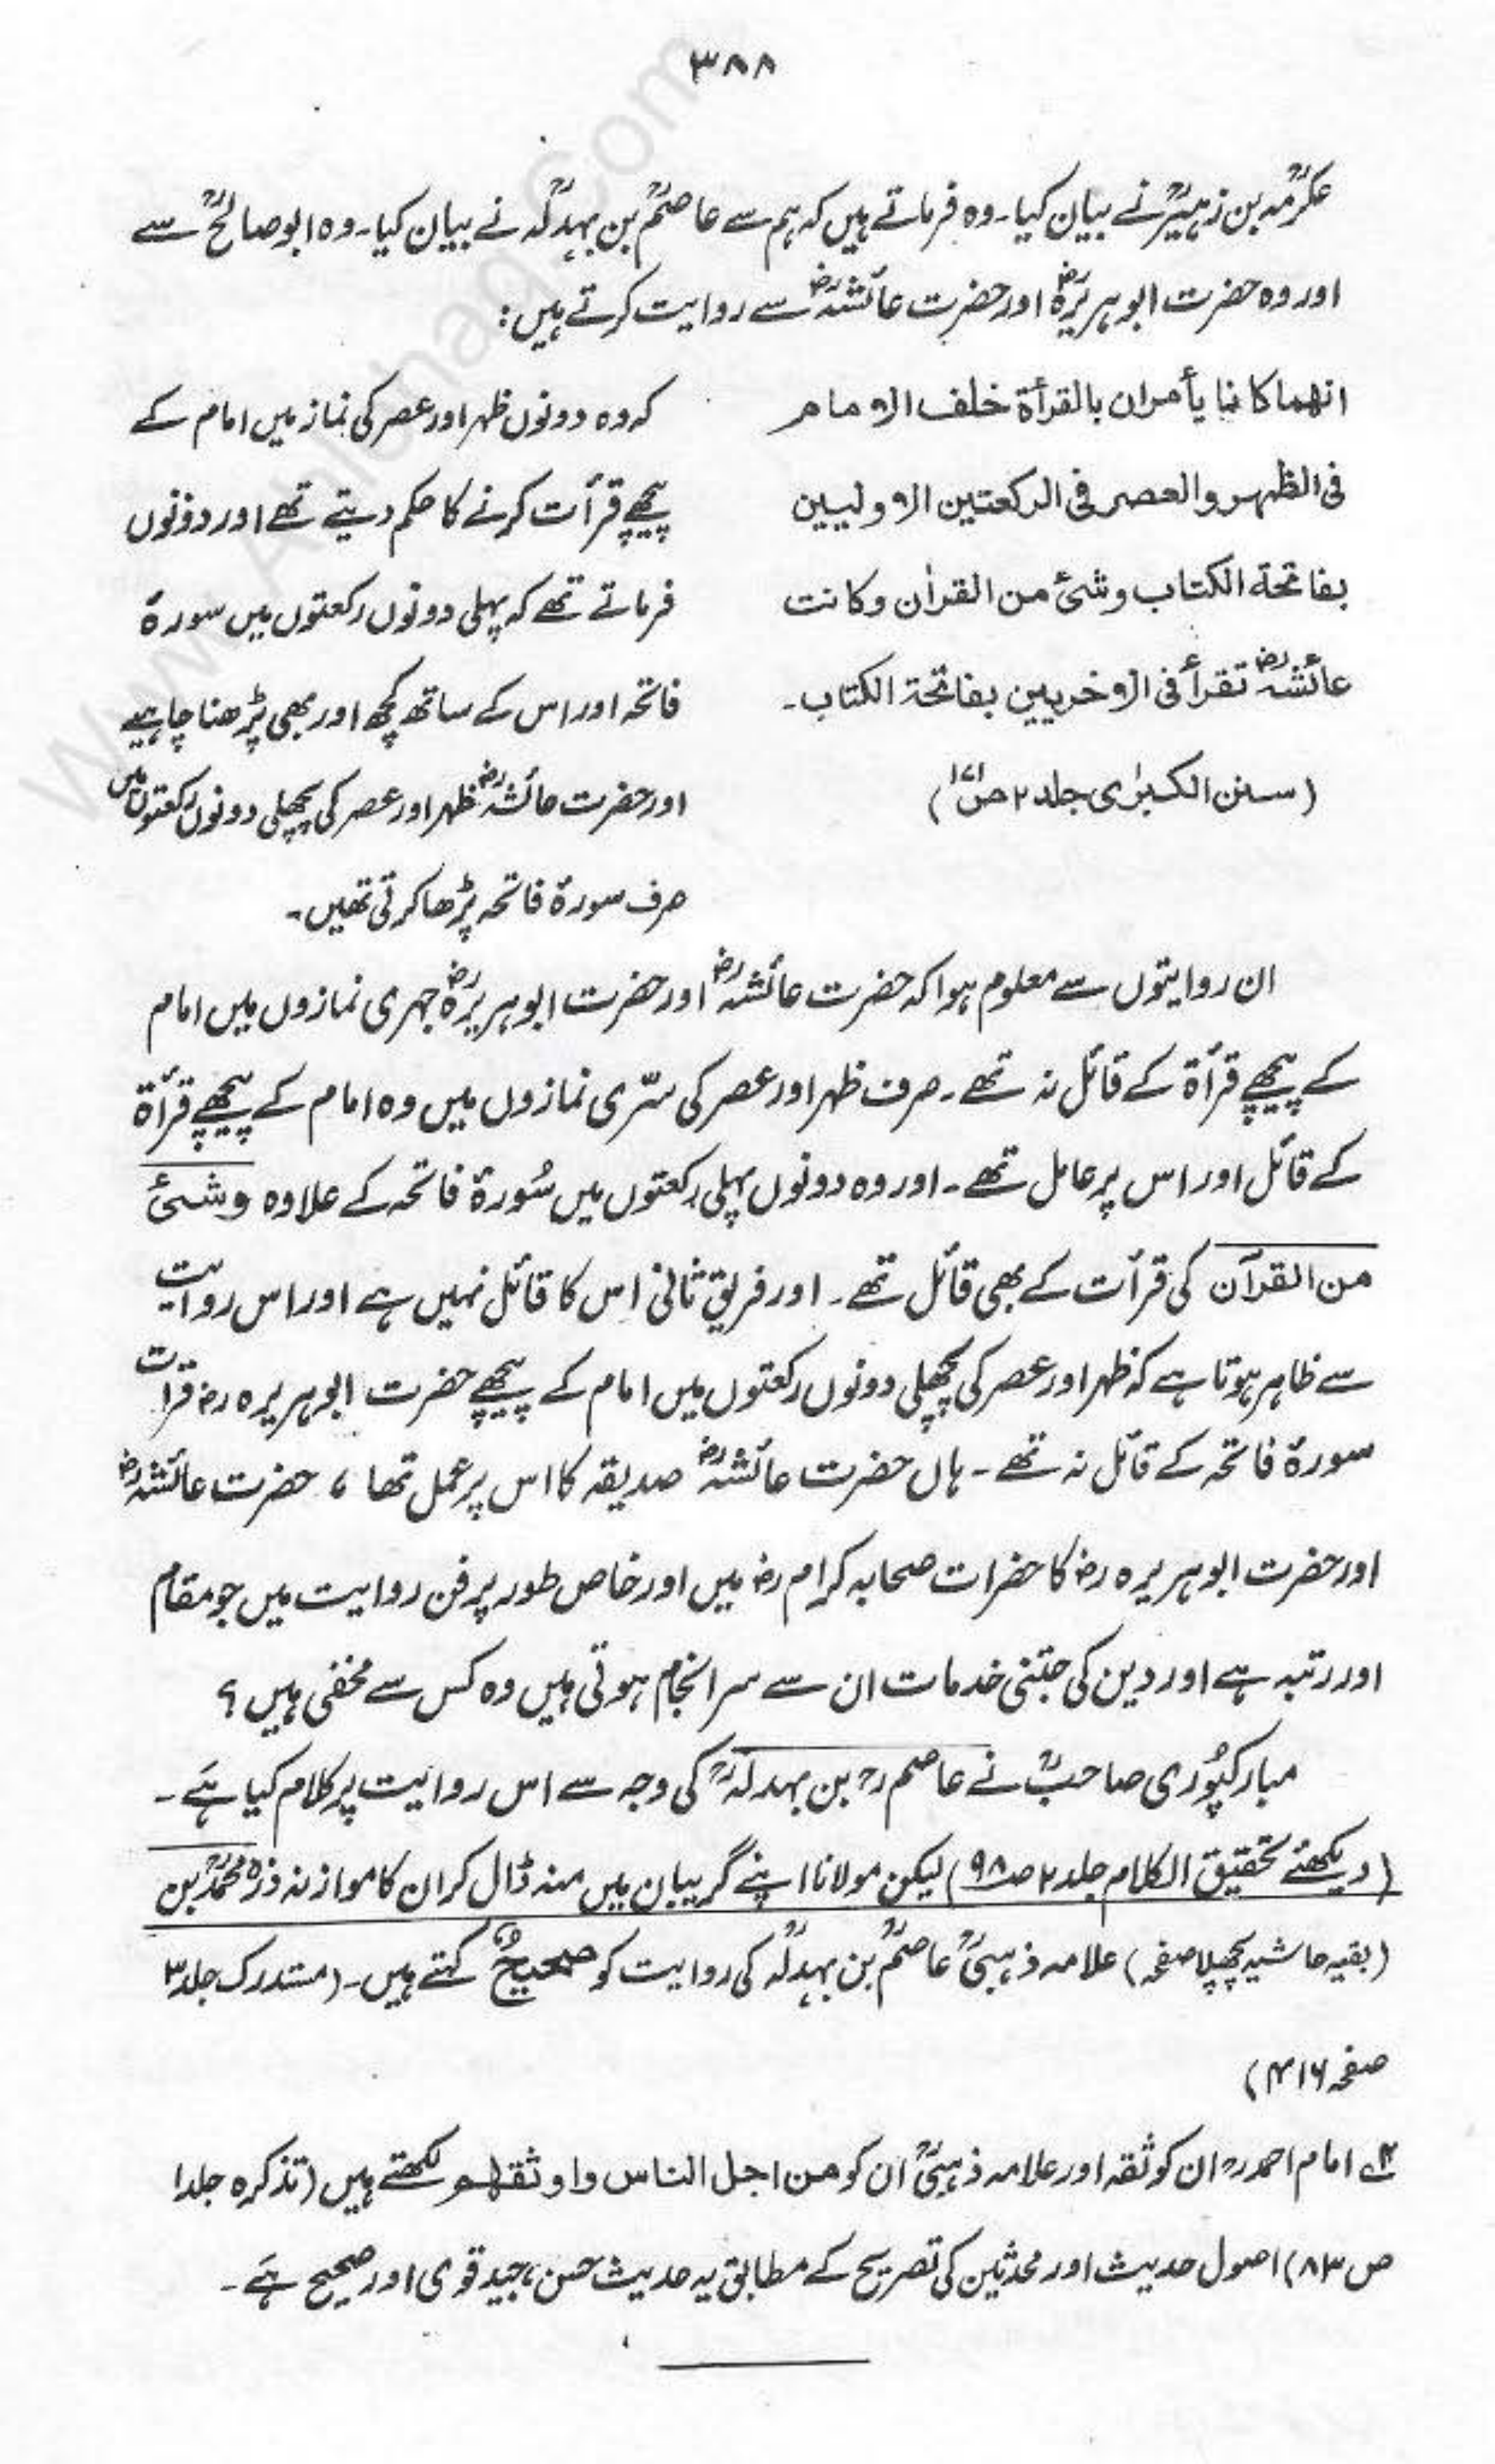 ٣٨٨
عکرمہؒ بن زہیرؒ نے بیان کیا۔ وہ فرماتے ہیں کہ ہم سے عاصمؒ بن بہدلہؒ نے بیان کیا۔ وہ ابو صالحؒ سے
اور وہ حضرت ابو ہریرہؓ اور حضرت عائشہؓ سے روایت کرتے ہیں:
انهما كانا يأمران بالقرأة خلف الامام
فى الظهر والعصر فى الركعتين الاوليين
بفاتحة الكتاب وشئ من القراٰن وكانت
عائشةؓ تقرأ فى الاخريين بفاتحة الكتاب۔
(سنن الکبرٰی جلد ۲ ص۱۷۱)
کہ وہ دونوں ظہر اور عصر کی نماز میں امام کے
پیچھے قرأت کرنے کا حکم دیتے تھے اور دونوں
فرماتے تھے کہ پہلی دونوں رکعتوں میں سورۃ
فاتحہ اور اس کے ساتھ کچھ اور بھی پڑھنا چاہیے
اور حضرت عائشہؓ ظہر اور عصر کی پچھلی دونوں رکعتوں میں
صرف سورۃ فاتحہ پڑھا کرتی تھیں۔
ان روایتوں سے معلوم ہوا کہ حضرت عائشہؓ اور حضرت ابو ہریرہؓ جہری نمازوں میں امام
کے پیچھے قرأۃ کے قائل نہ تھے۔ صرف ظہر اور عصر کی سرّی نمازوں میں وہ امام کے پیچھے قرأۃ
کے قائل اور اس پر عامل تھے۔ اور وہ دونوں پہلی رکعتوں میں سُورۃ فاتحہ کے علاوہ وشئ
من القرآن کی قرأت کے بھی قائل تھے۔ اور فریق ثانی اس کا قائل نہیں ہے اور اس روایت
سے ظاہر ہوتا ہے کہ ظہر اور عصر کی پچھلی دونوں رکعتوں میں امام کے پیچھے حضرت ابو ہریرہ رضؓ قرات
سورۃ فاتحہ کے قائل نہ تھے۔ ہاں حضرت عائشہؓ صدیقہ کا اس پر عمل تھا، حضرت عائشہؓ
اور حضرت ابو ہریرہ رضؓ کا حضرات صحابہ کرام رضؓ میں اور خاص طور پر فن روایت میں جو مقام
اور رتبہ ہے اور دین کی جتنی خدمات ان سے سرانجام ہوئی ہیں وہ کس سے مخفی ہیں؟
مبارکپُوری صاحبؒ نے عاصم رحؒ بن بہدلہؒ کی وجہ سے اس روایت پر کلام کیا ہے۔
(دیکھئے تحقیق الکلام جلد ۲ ص۹۸) لیکن مولانا اپنے گریبان میں منہ ڈال کر ان کا موازنہ ذرہ محمدؒ بن
(بقیہ حاشیہ پچھلا صفحہ) علامہ ذہبیؒ عاصمؒ بن بہدلہؒ کی روایت کو صحیحؒ کہتے ہیں۔ (مستدرک جلد ۳
صفحہ ۴۱۶)
۲ امام احمد رحؒ ان کو ثقہ اور علامہ ذہبیؒ ان کو من اجل الناس واوثقہم لکھتے ہیں (تذکرہ جلد ۱
ص ۸۳) اصول حدیث اور محدثین کی تصریح کے مطابق یہ حدیث حسن، جید قوی اور صحیح ہے۔